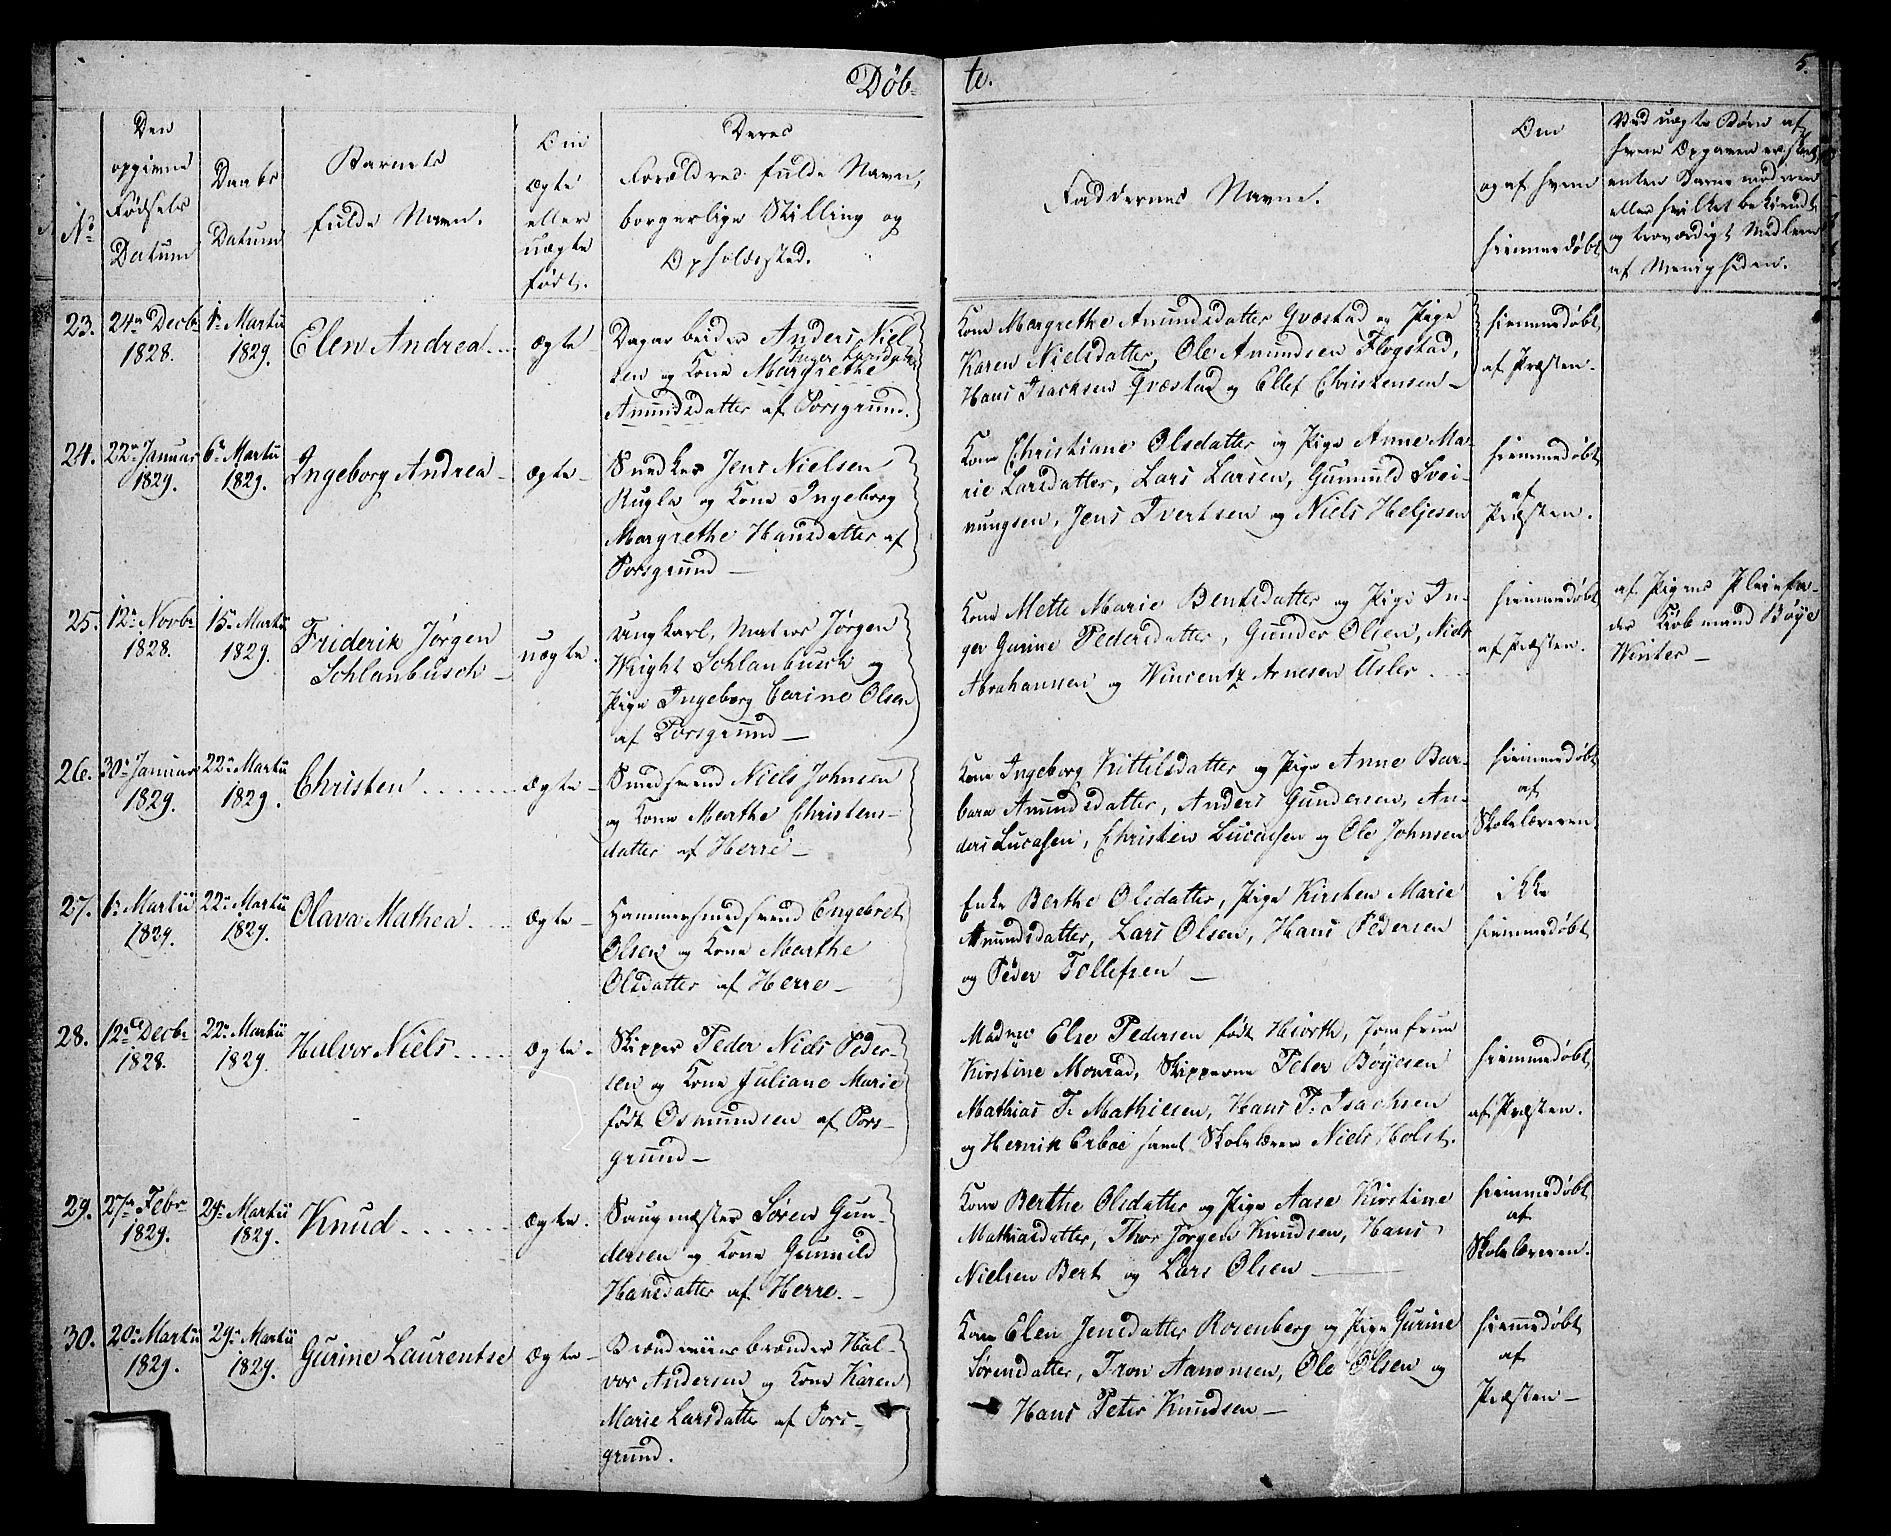 Døb-
te.
5.
No
Den
opgivne
Fødsels
Datum
Daabs
Datum
Barnets
fulde Navn.
Om
ægte
eller
uægte
født.
Deres
Forældres fulde Navn,
borgerlige Stilling og
Opholdssted.
Faddernes Navne.
Om
og af hvem
hjemmedøbt
Ved uægte Børn af
hvem Opgaven er skeet
enten Barnemoderen
eller hvilket bekiendt
og troværdigt Medlem
af Menigheden.
23.
24de Decb.
1828.
1te Martii
1829.
Elen Andrea
ægte
Dagarbeider Anders Niel-
Inger Larsdatter
sen og Kone Margrethe
Amundsdatter af Porsgrund.
Kone Margrethe Amundsdatter Qvæstad og Pige
Karen Nielsdatter, Ole Amundsen Flogstad,
Hans Isachsen Qvæstad og Ellef Christensen
hjemmedøbt
af Præsten.
24.
22de Januar
1829.
6te Martii
1829.
Ingeborg Andrea
ægte
Snedker Jens Nielsen
Kugle og Kone Ingeborg
Margrethe Hansdatter af
Porsgrund
Kone Christiane Olsdatter og Pige Anne Ma-
rie Larsdatter, Lars Larsen, Gunnuld Svei-
nungsen, Jens Ivertsen og Niels Heljesen
hjemmedøbt
af
Præsten.
25.
12te Novbr
1828.
15de Martii
1829.
Friderik Jørgen
Schlanbusch
uægte
Ungkarl, Matros Jørgen
Wright Schlanbusch og
Pige Ingeborg Carine Olsen
af Porsgrund
Kone Mette Marie Bentsdatter og Pige In-
ger Gurine Pedersdatter, Gunder Olsen, Niels
Abrahamsen og Wincentz Arnesen Usler
hjemmedøbt
af Præsten.
af Pigens Pleiefa-
der Kiøbmand Bøye
Winter
26.
30te Januar
1829.
22de Martii
1829.
Christen
ægte
Smedsvend Niels Johnsen
og Kone Marthe Christens-
datter af Herre
Kone Ingeborg Kittilsdatter og Pige Anne Bar-
bara Amundsdatter, Anders Gundersen, An-
ders Lucassen, Christen Lucassen og Ole Johnsen
hjemmedøbt
af
Skolelæreren.
27.
6te Martii
1829.
22de Martii
1829.
Olava Mathea
ægte
Hammersmedsvend Engebret
Olsen og Kone Marthe
Olsdatter af Herre
Enke Berthe Olsdatter, Pige Kirsten Marie
Amundsdatter, Lars Olsen, Hans Pedersen
og Peder Tollefsen
ikke
hjemmedøbt
28.
12te Decbr
1828.
22de Martii
1829.
Halvor Niels
ægte
Skipper Peder Niels Peder-
sen og Kone Juliane Marie
født Osmundsen af Pors-
grund
Madme Else Pedersen født Hiorth, Jomfrue
Kirstine Monrad, Skipperne Peter Bøyesen
Mathias T. Mathiesen, Hans P. Isachsen
og Henrik Erboe samt Skolelærer Niels Holst.
hjemmedøbt
af Præsten.
29.
27de Febr
1829.
29de Martii
1829.
Knud
ægte
Saugmæster Søren Gun-
dersen og Kone Gunnild
Hansdatter af Herre.
Kone Berthe Olsdatter og Pige Aase Kirstine
Mathiasdatter, Thor Jørgen Knudsen, Hans
Nielsen Bert og Lars Olsen
hjemmedøbt
af
Skolelæreren.
30.
20de Martii
1829.
29de Martii
1829.
Gurine Laurentse
ægte
Brændeviinsbrænder Hal-
vor Andersen og Kone Karen
Marie Larsdatter af Pors-
grund.
Kone Elen Jensdatter Rosenberg og Pige Gurine
Sørensdatter, Tron Aanonsen, Ole Olsen og
Hans Peter Knudsen
hjemmedøbt
af
Præsten